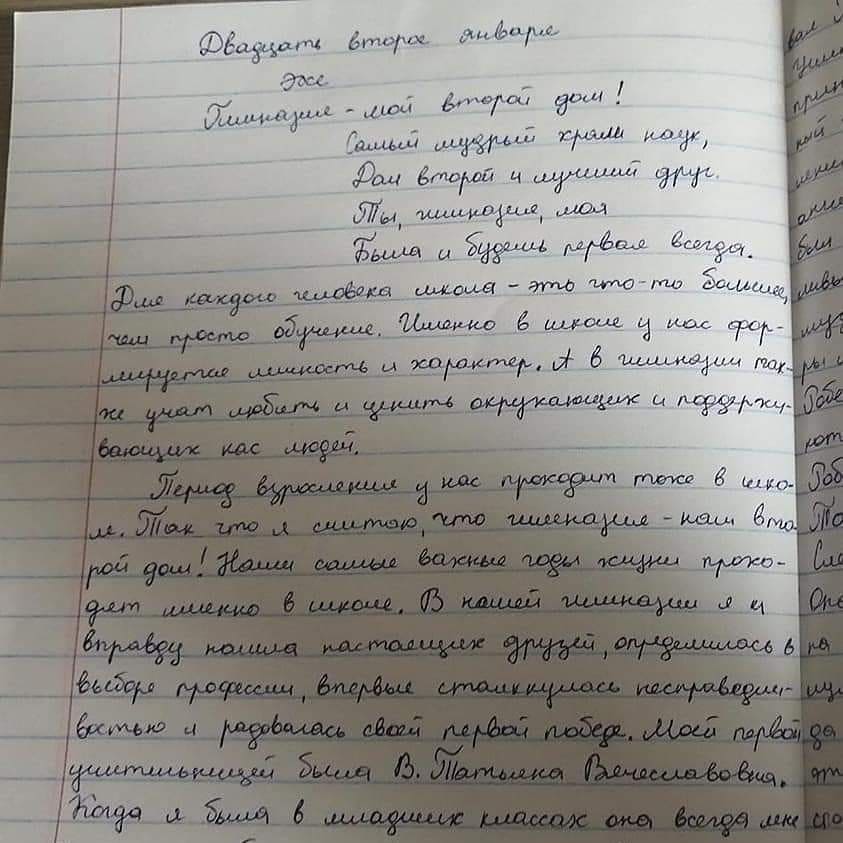 Двадцать второе января
Эссе
Гимназия - мой второй дом!
Самый мудрый храм наук,
Дом второй и лучший друг.
Ты, гимназия, моя
Была и будешь первая всегда.
Для каждого человека школа - это что-то большее,
чем просто обучение. Именно в школе у нас фор-
мируется личность и характер. А в гимназии так-
же учат любить и ценить окружающих и поддержи-
вающих нас людей.
Период взросления у нас проходит тоже в шко-
ле. Так что я считаю, что гимназия - наш вто
рой дом! Наши самые важные годы жизни прохо-
дят именно в школе. В нашей гимназии я и
вправду нашла настоящих друзей, определилась в
выборе профессии, впервые столкнулась несправедли-
востью и радовалась своей первой победе. Моей первой
учительницей была В. Татьяна Вячеславовна.
Когда я была в младших классах она всегда мне